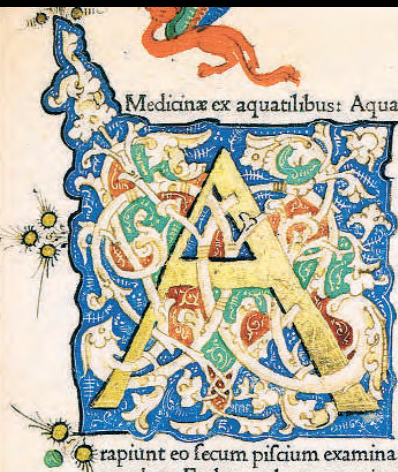 Medicinæ ex aquatilibus: Aqua
A
rapiunt eo ſecum piſcium examina